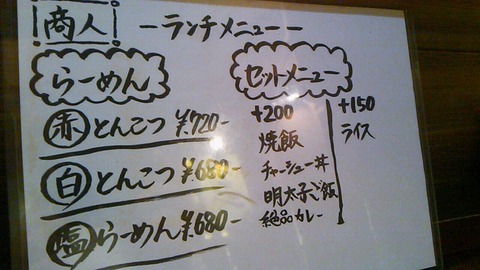 商人 ーランチメニューー
らーめん
赤とんこつ ¥720-
白とんこつ ¥680-
塩らーめん ¥680-
セットメニュー
+200
焼飯
チャーシュー丼
明太子ご飯
絶品カレー
+150
ライス